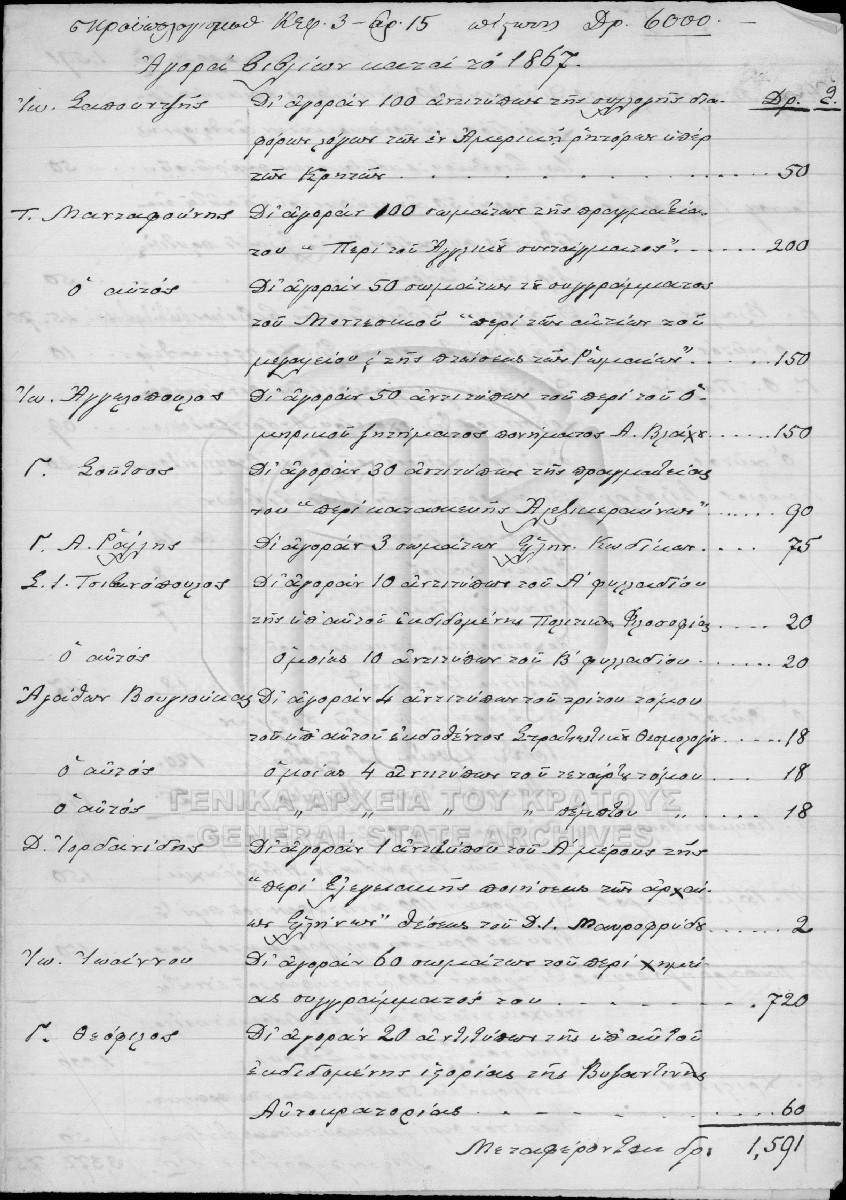 Κεφ. 3 – Αρ. 15 πίστωσις Δρ. 6000. –
Ἀγορά βιβλίων κατά τό 1867.
Δρ. λ.
Ἰω. Σαπουντζῆς Δι' ἀγοράν 100 ἀντιτύπων τῆς συλλογῆς δια-
φόρων λόγων τῶν ἐν Ἀμερικῇ ῥητόρων ὑπέρ
τῶν Κρητῶν . . . . . . . . . 50
Τ. Μανταφούνης Δι' ἀγοράν 100 σωμάτων τῆς πραγματεία.
του “Περί τοῦ Ἀγγλικοῦ συντάγματος". . . . . 200
ὁ αὐτός Δι' ἀγοράν 50 σωμάτων τοῦ συγγράμματος
τοῦ Μοντεσκιοῦ “περί τῶν αἰτίων τοῦ
μεγαλείου ϗ τῆς πτώσεως τῶν Ῥωμαίων". . . . . 150
Ἰω. Ἀγγελόπουλος Δι' ἀγοράν 50 ἀντιτύπων τοῦ περί τοῦ Ὁ-
μηρικοῦ ζητήματος πονήματος Α. Βλάχου . . . . . 150
Γ. Σοῦτσος Δι' ἀγοράν 30 ἀντιτύπων τῆς πραγματείας
του “περί κατασκευῆς Ἀλεξικεραύνων" . . . . . 90
Γ. Α. Ῥάλλης Δι' ἀγοράν 3 σωμάτων Ἑλλην. Κωδίκων. . . . . 75
Σ. Ι. Τσιβανόπουλος Δι' ἀγοράν 10 ἀντιτύπων τοῦ Α' φυλλαδίου
τῆς ὑπ' αὐτοῦ ἐκδιδομένης Πολιτικῆς Φιλοσοφίας . . . . 20
ὁ αὐτός ὁμοίως 10 ἀντιτύπων τοῦ Β' φυλλαδίου . . . . 20
Ἀγάθων Βουγιούκας Δι' ἀγοράν 4 ἀντιτύπων τοῦ τρίτου τόμου
τοῦ ὑπ' αὐτοῦ ἐκδοθέντος Στρατιωτικοῦ Θεσμολογίου . . . . 18
ὁ αὐτός ὁμοίως 4 ἀντιτύπων τοῦ τετάρτου τόμου . . . . 18
ὁ αὐτός „ „ „ „ πέμπτου „ . . 18
ΓΕΝΙΚΑ ΑΡΧΕΙΑ ΤΟΥ ΚΡΑΤΟΥΣ
GENERAL STATE ARCHIVES
Δ. Ἰορδανίδης Δι' ἀγοράν 1 ἀντιτύπου τοῦ Α' μέρους τῆς
“περί Ἐλεγειακῆς ποιήσεως τῶν ἀρχαί-
ων Ἑλλήνων" θέσεως τοῦ Δ. Ι. Μαυροφρύδου . . . . 2
Ἰω. Ἰωάννου Δι' ἀγοράν 60 σωμάτων τοῦ περί χημεί-
ας συγγράμματός του . . . . . . 720
Γ. Θεόφιλος Δι' ἀγοράν 20 ἀντιτύπων τῆς ὑπ' αὐτοῦ
ἐκδιδομένης ἱστορίας τῆς Βυζαντινῆς
Αὐτοκρατορίας . . . . . . . . 60
Μεταφέρονται δρ. 1,591